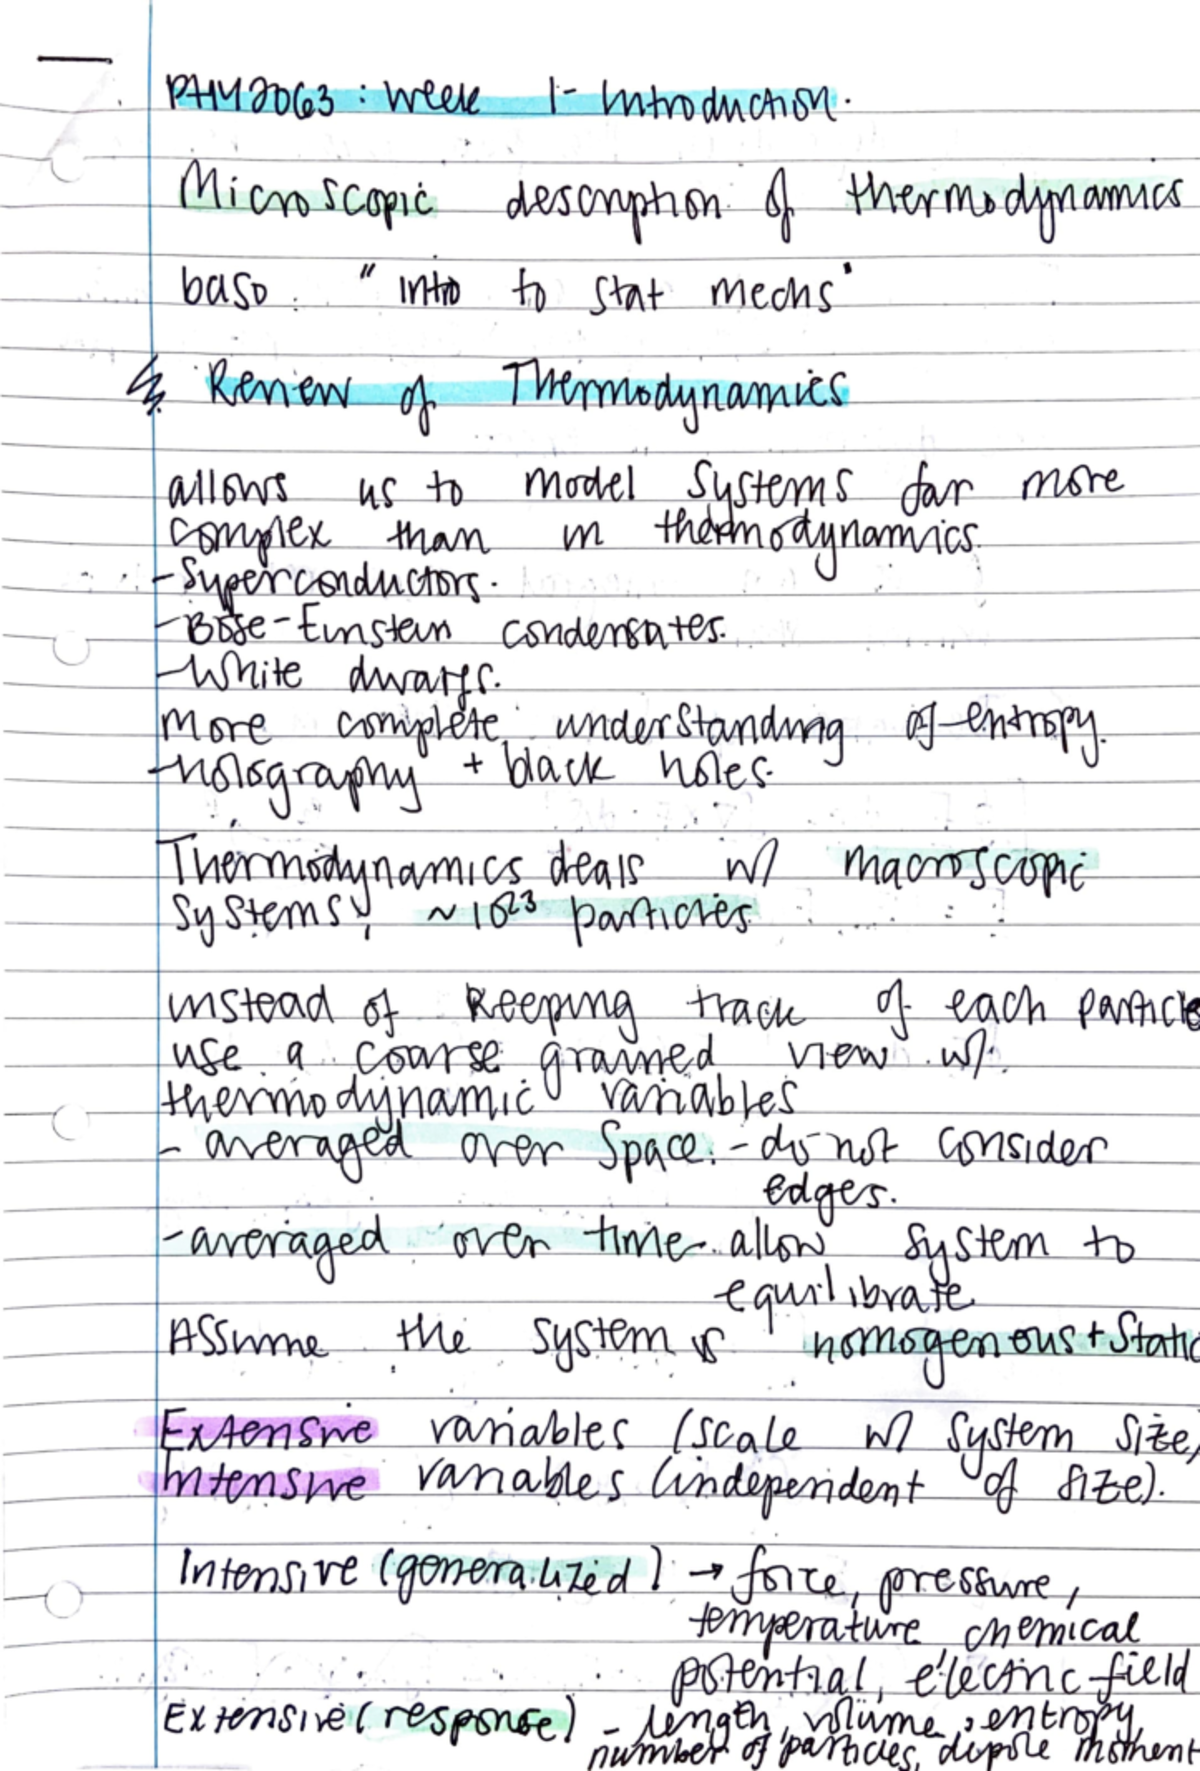 PHY2063 : Week 1 - Introduction.
Microscopic description of thermodynamics
baso. "intro to stat mechs"
Review of Thermodynamics
allows us to model systems far more
complex than in thermodynamics.
- Superconductors.
- Bose-Einstein condensates.
- White dwarfs.
more complete understanding of entropy.
- holography + black holes.
Thermodynamics deals w/ macroscopic
systems, ~10²³ particles
instead of keeping track of each particle
use a coarse grained view w/
thermodynamic variables
- averaged over space. - do not consider
edges.
- averaged over time - allow system to
equilibrate
Assume the system is homogenous + Static
Extensive variables (scale w/ system size)
Intensive variables (independent of size).
Intensive (generalized) → force, pressure,
temperature chemical
potential, electric field
Extensive (response) - length, volume, entropy,
number of particles, dipole moment